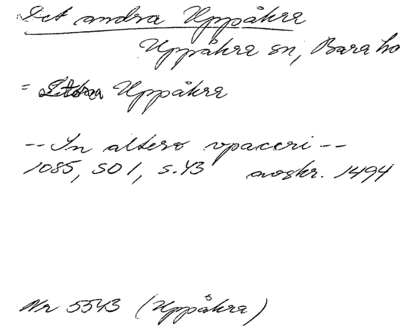 Det andra Uppåkra
Uppåkra sn, Bara hd
= Uppåkra
-- In altero vpaccri --
1085, SD 1, s. 43 avskr. 1494
Nr 5543 (Uppåkra)